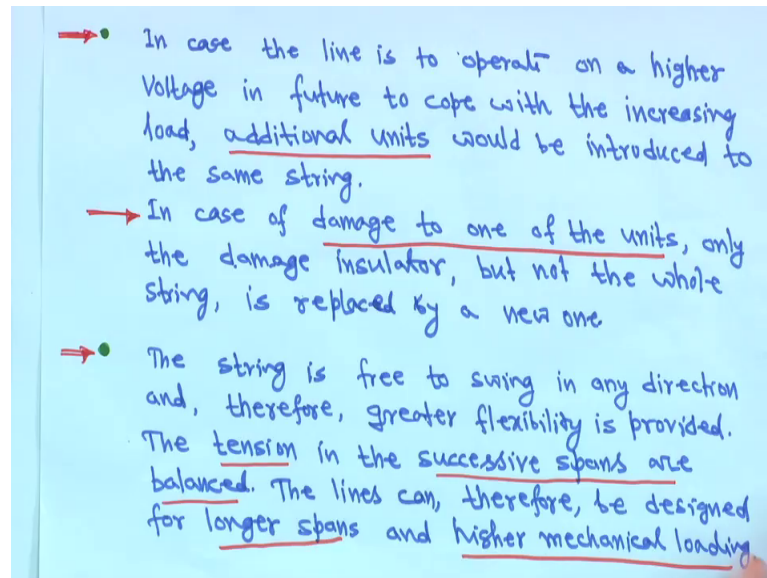 In case the line is to operate on a higher
Voltage in future to cope with the increasing
load, additional units would be introduced to
the same string.
In case of damage to one of the units, only
the damage insulator, but not the whole
string, is replaced by a new one
The string is free to swing in any direction
and, therefore, greater flexibility is provided.
The tension in the successive spans are
balanced. The lines can, therefore, be designed
for longer spans and higher mechanical loading.